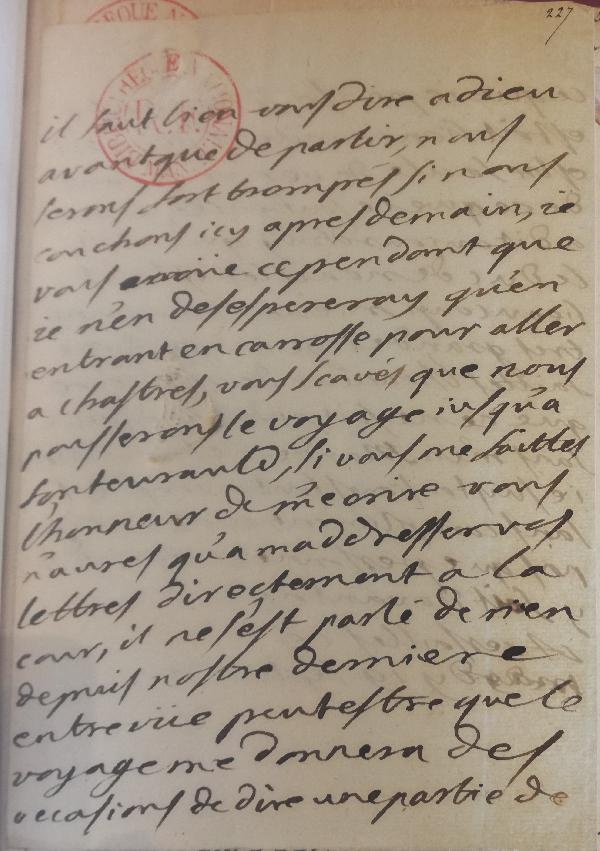 227
il faut bien vous dire adieu
avant que de partir, nous
serons fort trompés si nous
couchons icy apres demain, ie
vous avoüe cependant que
ie n'en desespereray qu'en
entrant en carrosse pour aller
a chastres, vous scavés que nous
pousserons le voyage iusqu'a
fonteurauld, si vous me faittes
l'honneur de m'ecrire vous
n'aures qu'a maddresser vos
lettres directement a la
cour, il ne s'est parlé de rien
depuis nostre derniere
entreviie peutestre que le
voyage me donnera des
occasions de dire une partie de